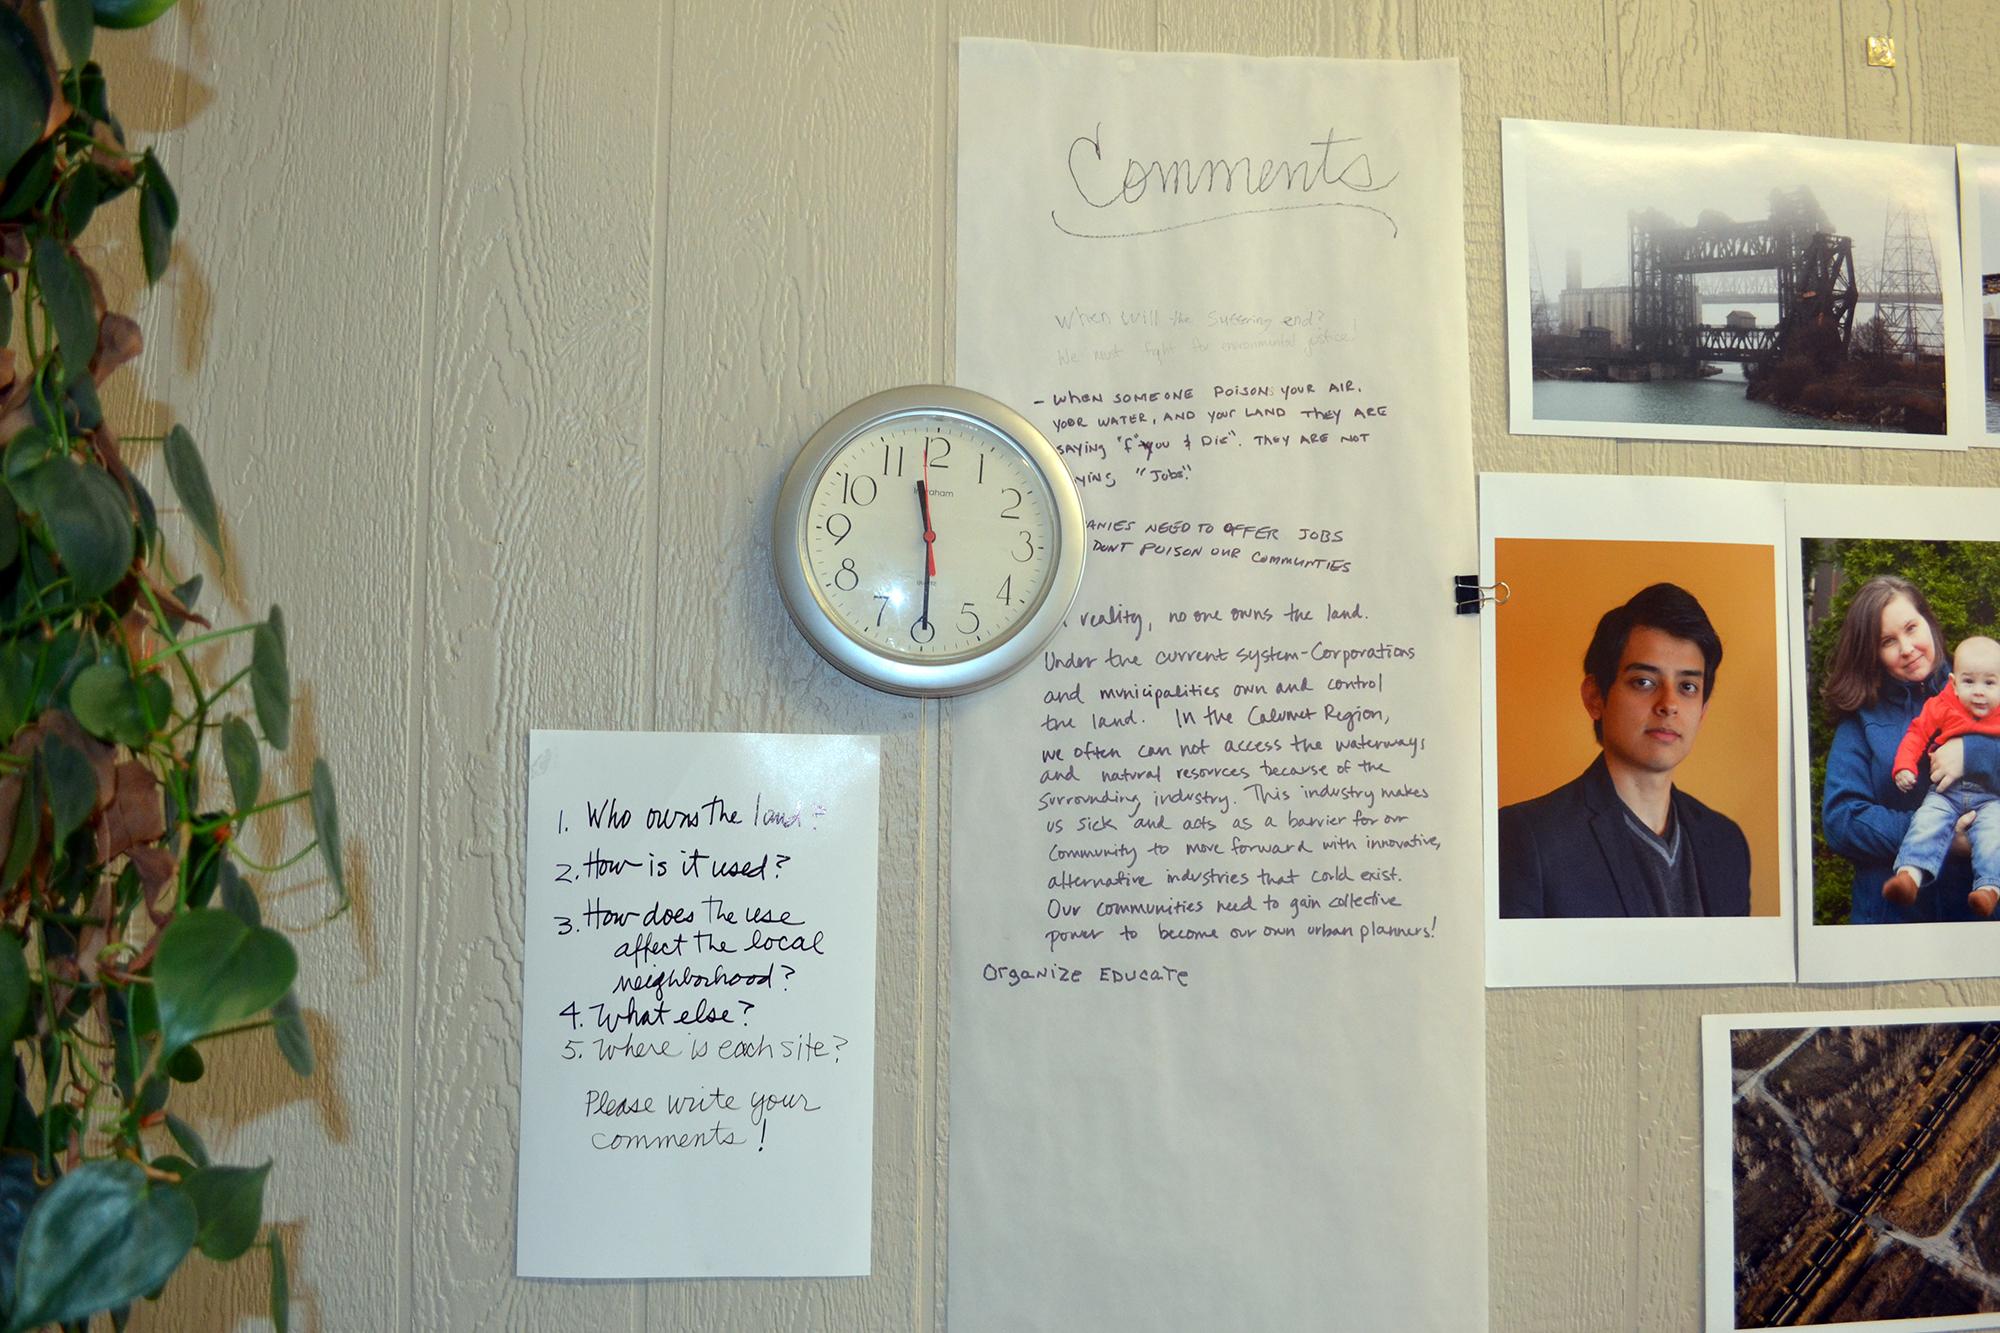 1. Who owns the land?
2. How is it used?
3. How does the use
affect the local
neighborhood?
4. What else?
5. Where is each site?
Please write your
comments!
11 12 1
10 2
9 3
8 4
7 6 5
QUARTZ
Comments
When will the Suffering end?
We must fight for environmental justice!
- WHEN SOMEONE POISONS YOUR AIR,
YOUR WATER, AND YOUR LAND THEY ARE
SAYING "F" YOU & DIE". THEY ARE NOT
YING "JOBS".
ANIES NEED TO OFFER JOBS
DONT POISON OUR COMMUNTIES
reality, no one owns the land.
Under the current system-Corporations
and municipalities own and control
the land. In the Calumet Region,
we often can not access the waterways
and natural resources because of the
surrounding industry. This industry makes
us sick and acts as a barrier for our
community to move forward with innovative,
alternative industries that could exist.
Our communities need to gain collective
power to become our own urban planners!
Organize EDUCATE